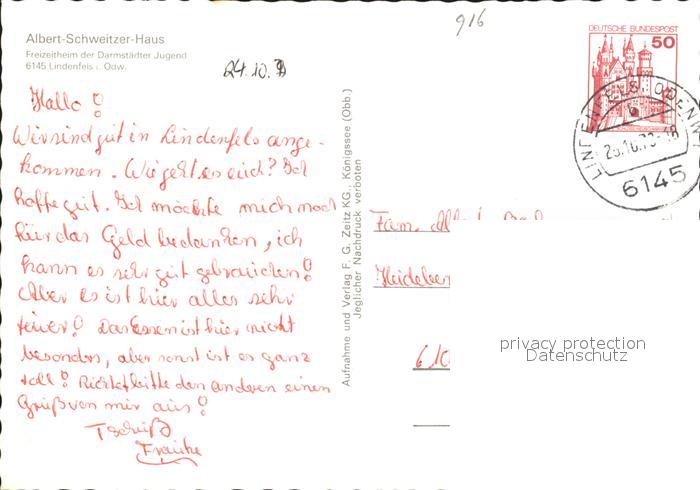 916
Albert-Schweitzer-Haus
Freizeitheim der Darmstädter Jugend
6145 Lindenfels i. Odw.
24.10.
DEUTSCHE BUNDESPOST
50
LINDENFELS, ODENW
6145
Hallo!
Wir sind gut in Lindenfels ange-
kommen. Wie geht es euch? Ich
hoffe gut. Ich möchte mich noch
für das Geld bedanken, ich
kann es sehr gut gebrauchen!
Aber es ist hier alles sehr
teuer! Das Essen ist hier nicht
besonders, aber sonst ist es ganz
toll! Richtet bitte den anderen einen
Gruß von mir aus!
Tschüß
Frauke
Aufnahme und Verlag F. G. Zeitz KG., Königssee (Obb.)
Jeglicher Nachdruck verboten
Fam.
Heidelber
610
privacy protection
Datenschutz